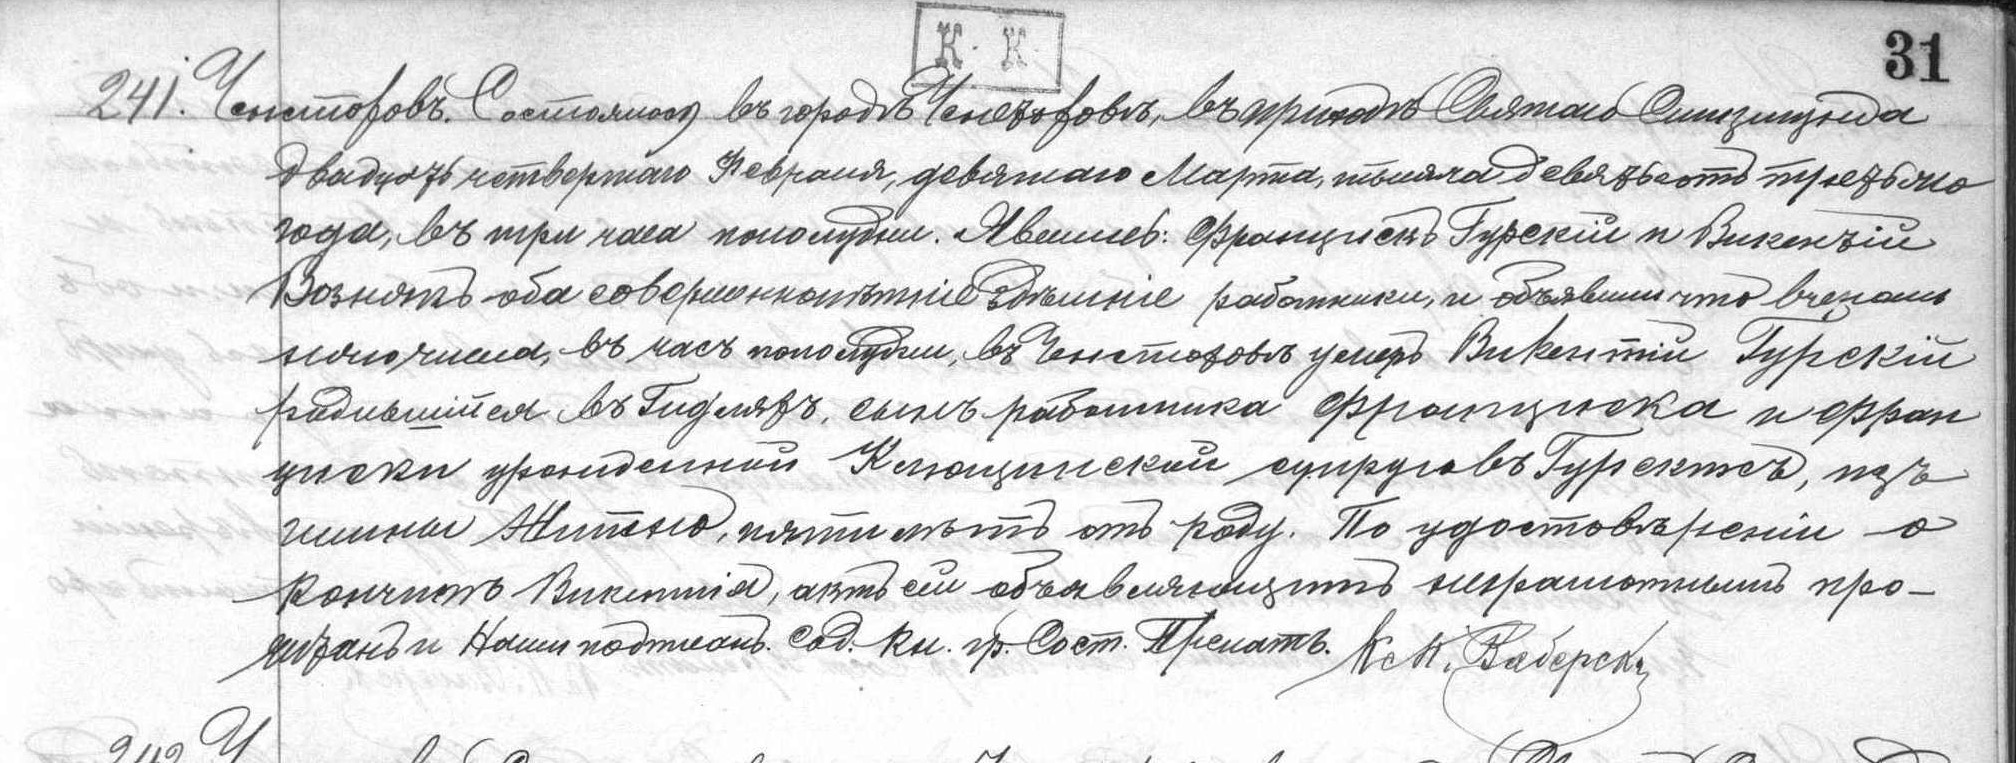 К. К.
31
241. Ченстоховъ. Состоялось въ городѣ Ченстоховѣ, въ приходѣ Святаго Сигизмунда
двадцать четвертаго Февраля, девятаго Марта, тысяча девятьсотъ третьяго
года, въ три часа пополудни. Явились: Францискъ Гурскій и Викентій
Вознякъ оба совершеннолѣтніе здѣшніе работники, и объявили что вчераш
няго числа, въ часъ пополудни, въ Ченстоховѣ умеръ Викентій Гурскій
родившійся въ Гидляхъ, сынъ работника Франциска и Фран
циски урожденной супруговъ Гурскихъ, изъ
гмины Житно, пяти лѣтъ отъ роду. По удостовѣреніи о
кончинѣ Викентія, актъ сей объявляющимъ неграмотнымъ про-
читанъ и Нами подписанъ. Сод. кн. гр. Сост. Прелатъ.
242 Ч